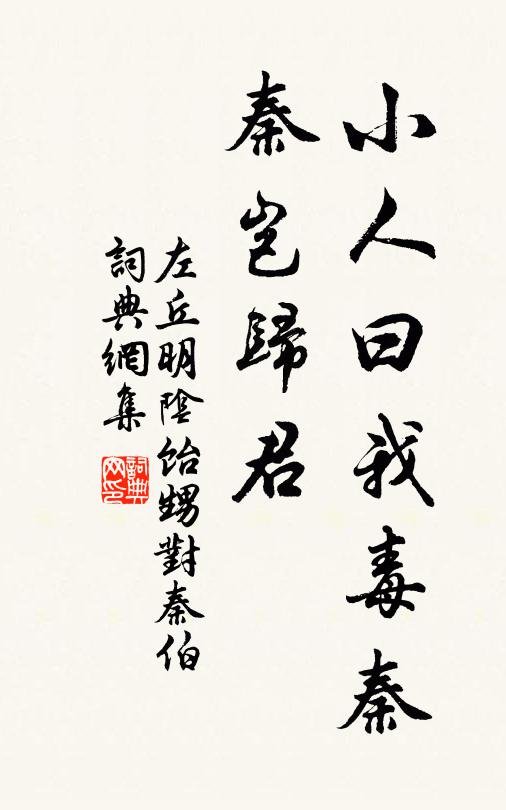 小人曰我毒秦
秦岂歸君
左丘明陰飴甥對秦伯
詞典網集
詞典
网印